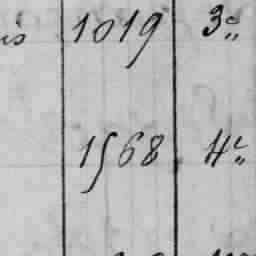 is 1019 3c.
1568 4c.